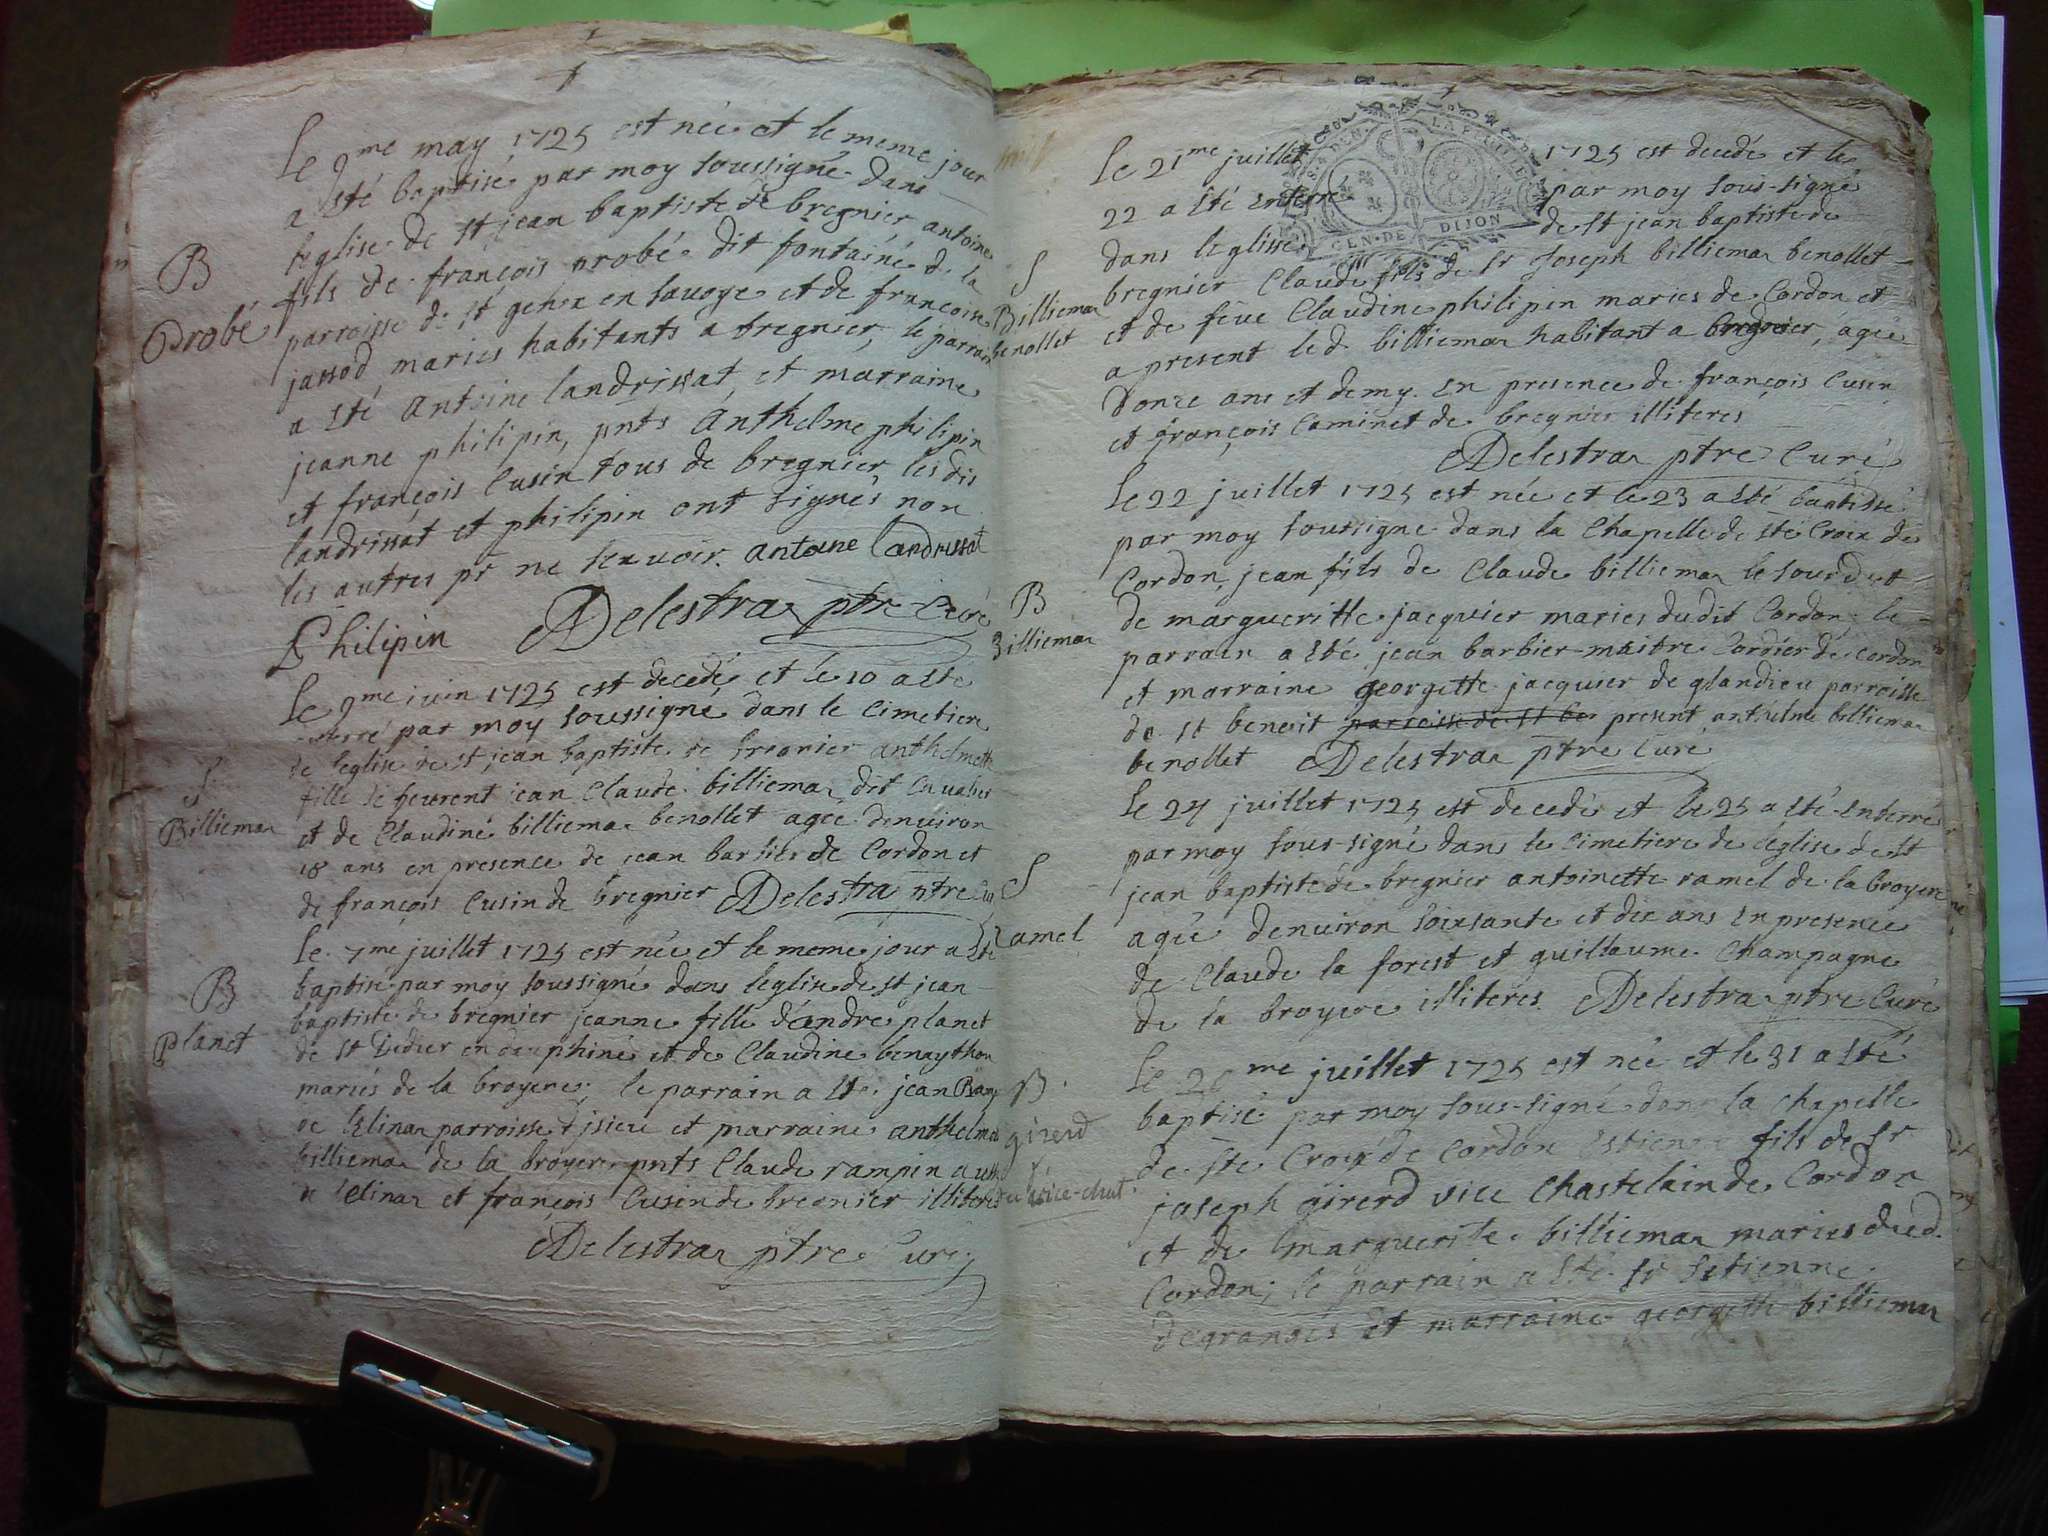 le 9me may 1725 est née et le meme jour
a été baptisé par moy soussigné dans
leglise de st jean baptiste de bregnier antoine
fils de françois probé dit fontaine de la
B
Probé
parroisse de st genix en savoye et de francoise
jassod maries habitants a bregnier, le parrain
a été antoine landrissat et marraine
jeanne philipin, pnts Anthelme philipin
et françois Cusin tous de bregnier les dis
landrissat et philipin ont signés non
les autres pr ne sçavoir. antoine Landrissat
Philipin Delestraz ptre Curé
le 9me juin 1725 est decedé et le 10 a été
enterré par moy soussigné dans le Cimetiere
de leglise de st jean baptiste de bregnier anthelmette
fille de jean Claude billiemaz dit Cavalier
S
Billiemaz
et de Claudine billiemaz benollet agée denviron
18 ans en presence de jean barbier de Cordon et
de françois Cusin de bregnier Delestraz ptre Cu
le 7me juillet 1725 est née et le meme jour a été
B
Planet
baptisé par moy soussigné dans leglise de st jean
baptiste de bregnier jeanne fille d'andre planet
de st Didier en dauphiné et de Claudine benaython
mariés de la broyere; le parrain a été jean
de lelinaz parroisse d jsieu et marraine anthelme
billiemaz de la broyere pnts Claude rampin aussi
de lelinaz et françois Cusin de bregnier illiteres
Delestraz ptre Curé
le 21me juillet 1725 est decedé et le
22 a été enterré par moy sous-signé
dans leglise de st jean baptiste de
S
Billiemaz
benollet
bregnier Claude fils de sr Joseph billiemaz benollet
et de feue Claudine philipin maries de Cordon et
a present led. billiemaz habitant a bregnier, agée
Donze ans et demy. en presence de françois Cusin
et françois Caminet de bregnier illiteres
Delestraz ptre Curé
le 22 juillet 1725 est née et le 23 a été baptissé
par moy soussigné dans la Chapelle de ste Croix de
Cordon, jean fils de Claude billiemaz le sourd et
B
Billiemaz
de margueritte jacquier maries dudit Cordon; le
parrain a été jean barbier maitre Cordier de cordon
et marraine georgette jacquier de glandieu parroisse
de st benoit parroisse de st be present anthelme billiemaz
benollet Delestraz ptre Curé
le 24 juillet 1725 est decedé et le 25 a été enterré
par moy sous-signé dans le Cimetiere de leglise de st
S
Ramel
jean baptiste de bregnier antoinette ramel de la broyere
agée denviron soixsante et dix ans en presence
de Claude la forest et guillaume Champagne
de la broyere illiteres. Delestraz ptre Curé
le me juillet 1725 est née et le 31 a été
B.
girerd
vice-chat.
baptisé par moy sous-signé dans la chapelle
de ste Croix de Cordon Estienne fils de sr
joseph girerd vice Chastelain de Cordon
et de marguerite billiemaz maries dud.
Cordon; le parrain a été sr Estienne
degranges et marraine georgette billiemaz
GEN. DE DIJON